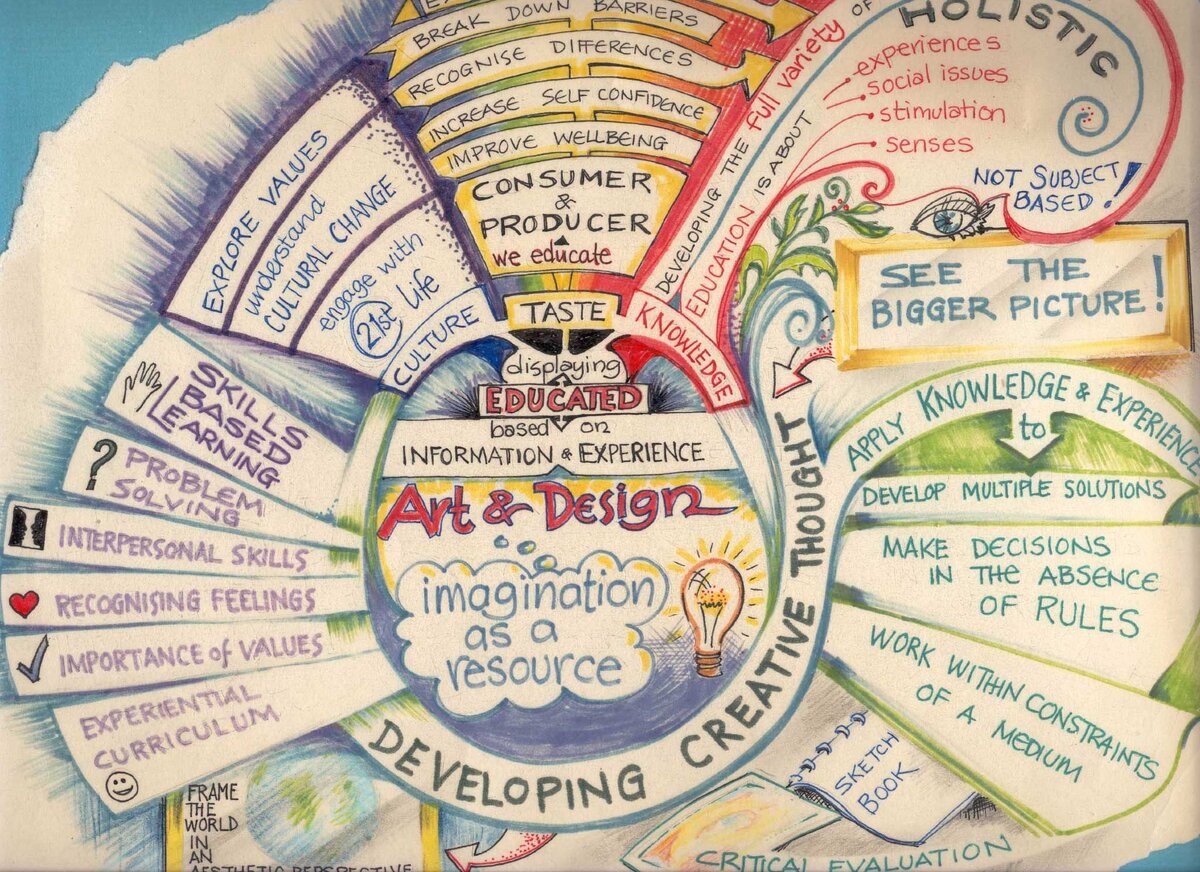 BREAK DOWN BARRIERS
RECOGNISE DIFFERENCES
INCREASE SELF CONFIDENCE
IMPROVE WELLBEING
CONSUMER
&
PRODUCER
we educate
TASTE
displaying
EDUCATED
based on
INFORMATION & EXPERIENCE
Art & Design
imagination
as a
resource
DEVELOPING CREATIVE THOUGHT
EXPLORE VALUES
understand
CULTURAL CHANGE
engage with
21st Life
CULTURE
SKILLS
BASED
LEARNING
?
PROBLEM
SOLVING
INTERPERSONAL SKILLS
RECOGNISING FEELINGS
IMPORTANCE of VALUES
EXPERIENTIAL
CURRICULUM
FRAME
THE
WORLD
IN
AN
AESTHETIC PERSPECTIVE
KNOWLEDGE
DEVELOPING THE full variety OF
EDUCATION IS ABOUT
HOLISTIC
experiences
social issues
stimulation
senses
NOT SUBJECT
BASED!
SEE THE
BIGGER PICTURE!
APPLY KNOWLEDGE & EXPERIENCE
to
DEVELOP MULTIPLE SOLUTIONS
MAKE DECISIONS
IN THE ABSENCE
OF RULES
WORK WITHIN CONSTRAINTS
OF A MEDIUM
SKETCH
BOOK
CRITICAL EVALUATION